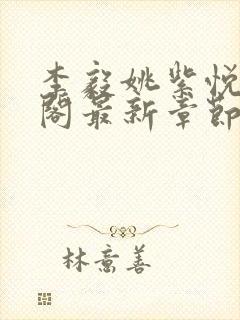 李毅姚紫悦
阁最新章节
林意善